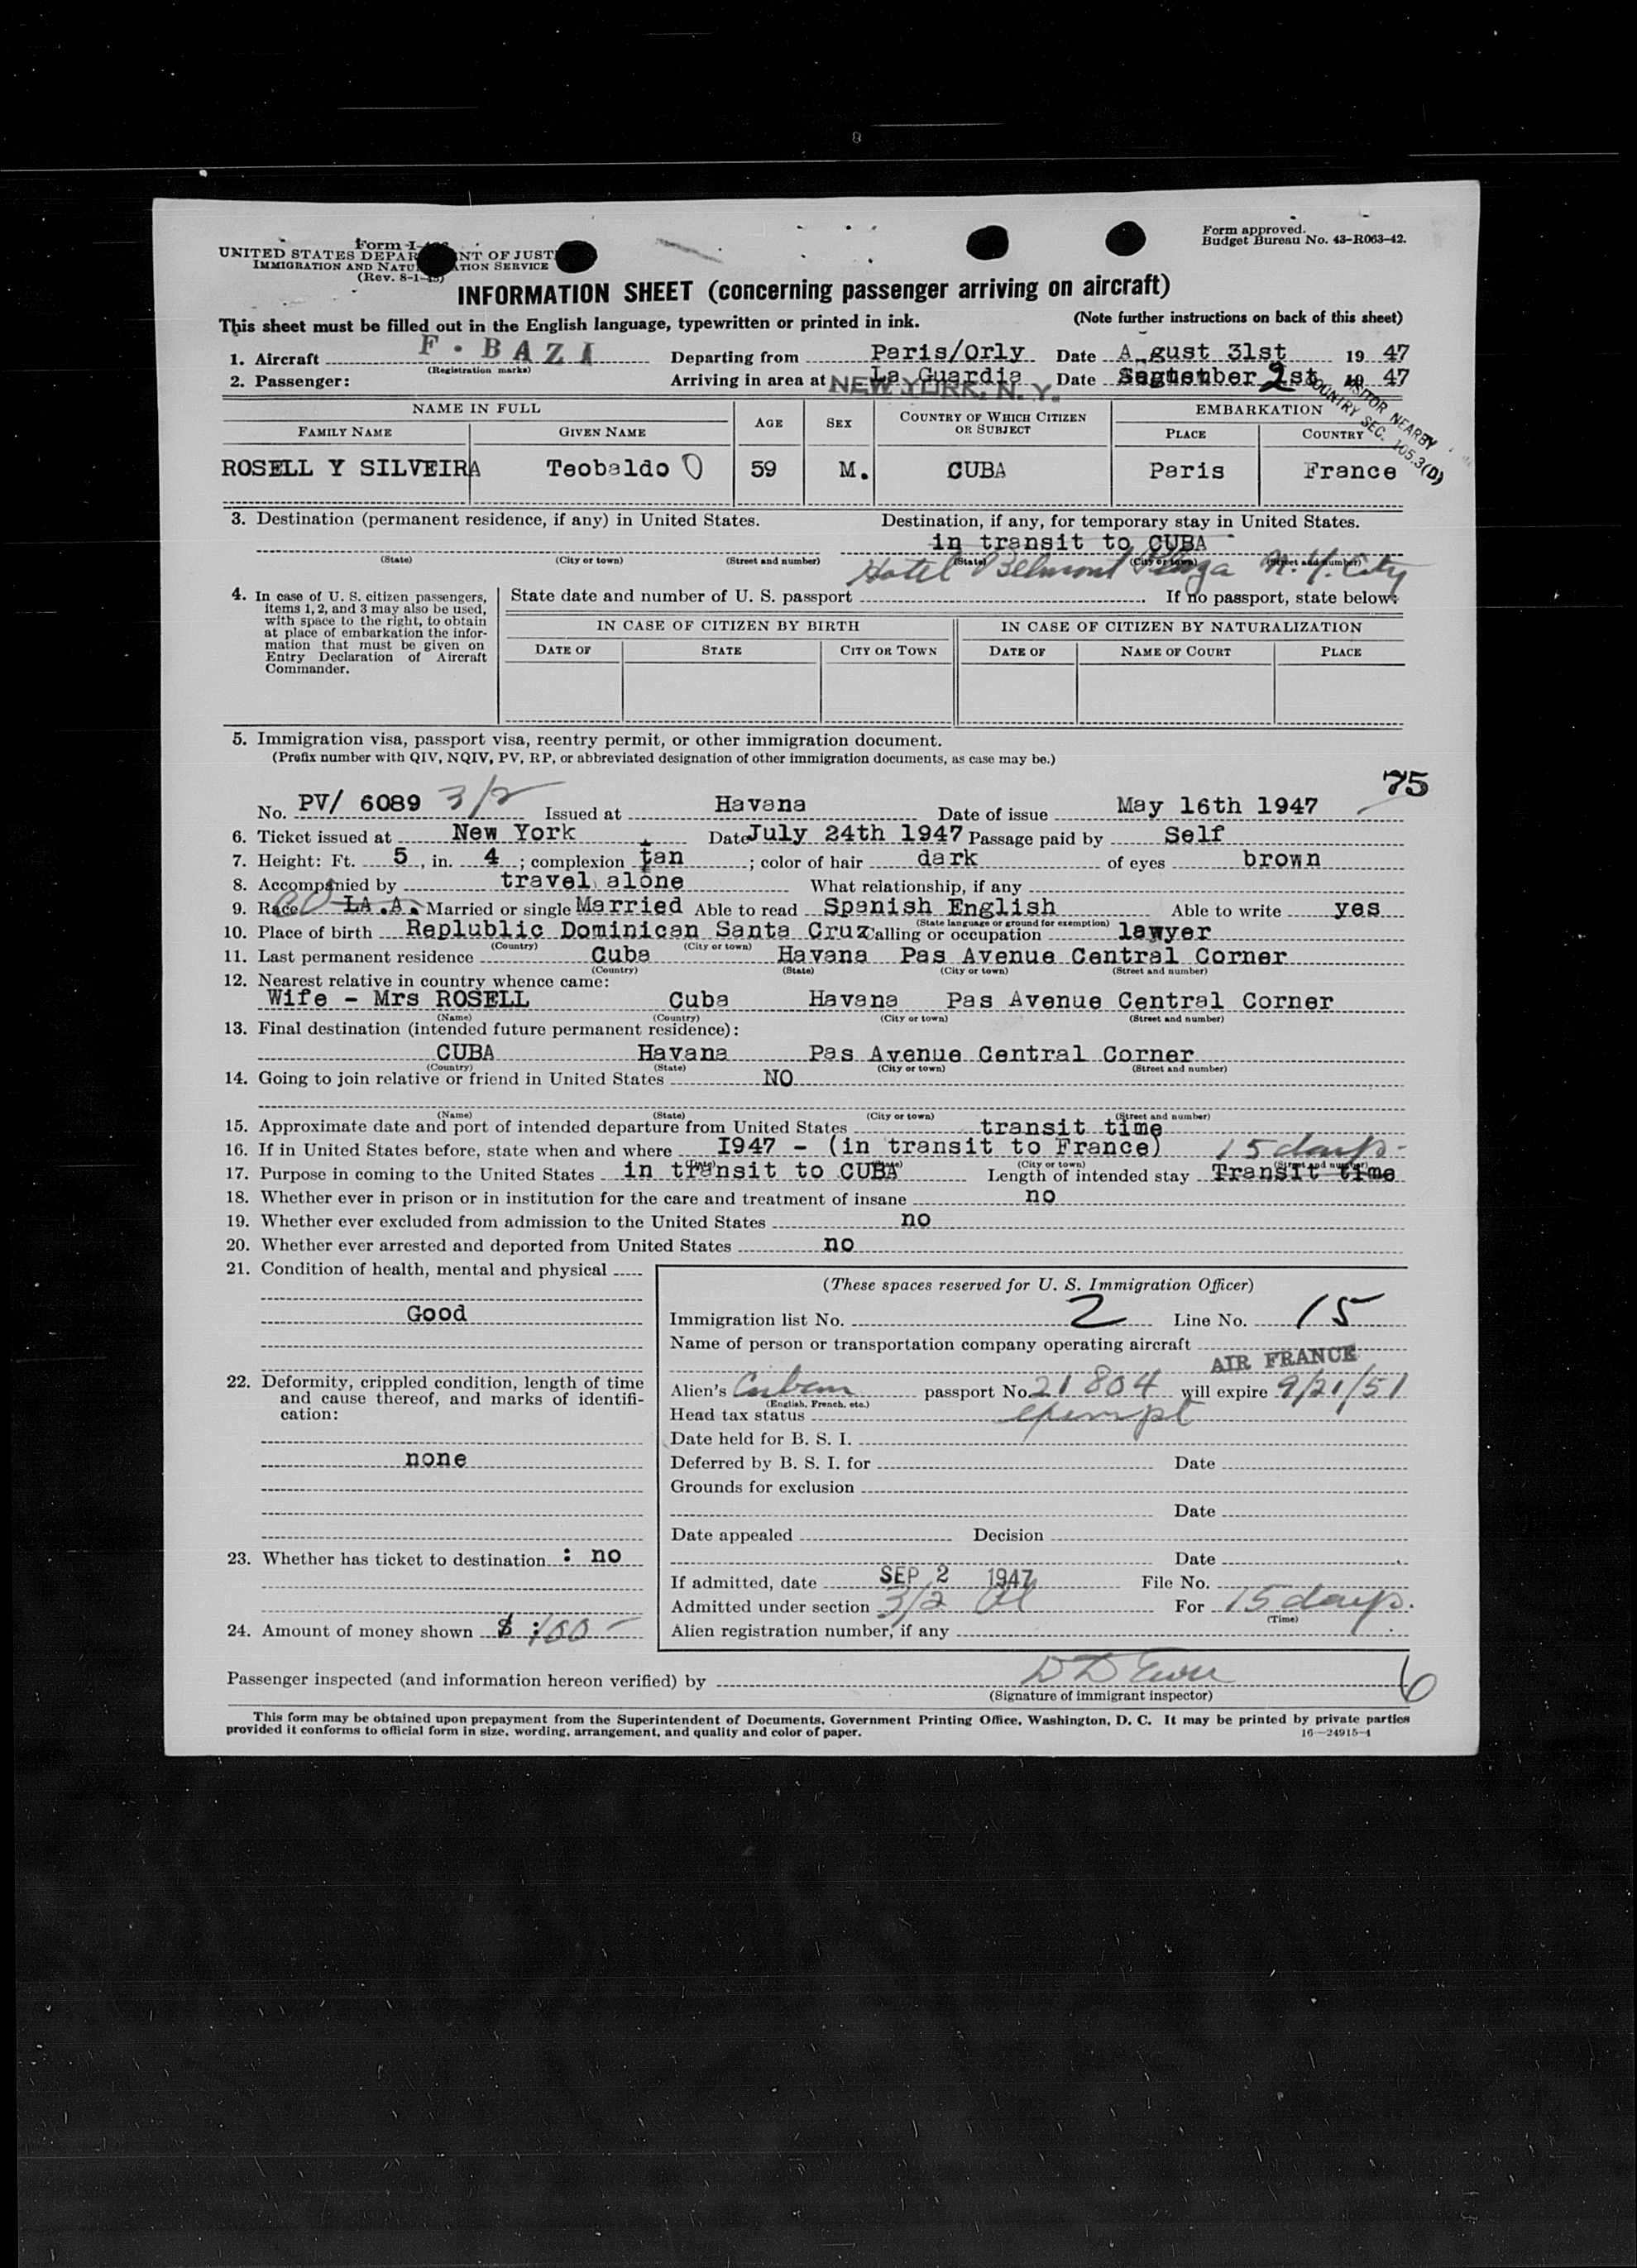 8
Form I-
UNITED STATES DEPAR NT OF JUST
IMMIGRATION AND NATU ATION SERVICE
(Rev. 8-1-45)
Form approved.
Budget Bureau No. 43-R063-42.
INFORMATION SHEET (concerning passenger arriving on aircraft)
This sheet must be filled out in the English language, typewritten or printed in ink. (Note further instructions on back of this sheet)
1. Aircraft F. BAZI Departing from Paris/Orly Date A gust 31st 19 47
(Registration marks)
2. Passenger: Arriving in area at La Guardia NEW YORK, N. Y. Date September 2 1st 19 47
VISITOR NEARBY
COUNTRY SEC. 105.3(D)
NAME IN FULL AGE SEX COUNTRY OF WHICH CITIZEN OR SUBJECT EMBARKATION
FAMILY NAME GIVEN NAME PLACE COUNTRY
ROSELL Y SILVEIRA Teobaldo O 59 M. CUBA Paris France
3. Destination (permanent residence, if any) in United States. Destination, if any, for temporary stay in United States.
in transit to CUBA
(State) (City or town) (Street and number) (State) (City or town) (Street and number)
Hotel Belmont Plaza N.Y. City
4. In case of U. S. citizen passengers, items 1, 2, and 3 may also be used, with space to the right, to obtain at place of embarkation the information that must be given on Entry Declaration of Aircraft Commander.
State date and number of U. S. passport If no passport, state below:
IN CASE OF CITIZEN BY BIRTH IN CASE OF CITIZEN BY NATURALIZATION
DATE OF STATE CITY OR TOWN DATE OF NAME OF COURT PLACE
5. Immigration visa, passport visa, reentry permit, or other immigration document.
(Prefix number with QIV, NQIV, PV, RP, or abbreviated designation of other immigration documents, as case may be.)
75
No. PV/ 6089 3/2 Issued at Havana Date of issue May 16th 1947
6. Ticket issued at New York Date July 24th 1947 Passage paid by Self
7. Height: Ft. 5, in. 4; complexion tan; color of hair dark of eyes brown
8. Accompanied by travel alone What relationship, if any
9. Race LA.A. Married or single Married Able to read Spanish English Able to write yes
(State language or ground for exemption)
10. Place of birth Replublic Dominican Santa Cruz Calling or occupation lawyer
(Country) (City or town)
11. Last permanent residence Cuba Havana Pas Avenue Central Corner
(Country) (State) (City or town) (Street and number)
12. Nearest relative in country whence came:
Wife - Mrs ROSELL Cuba Havana Pas Avenue Central Corner
(Name) (Country) (City or town) (Street and number)
13. Final destination (intended future permanent residence):
CUBA Havana Pas Avenue Central Corner
(Country) (State) (City or town) (Street and number)
14. Going to join relative or friend in United States NO
(Name) (State) (City or town) (Street and number)
15. Approximate date and port of intended departure from United States transit time
16. If in United States before, state when and where I947 - (in transit to France) 15 days -
(City or town) (Street and number)
17. Purpose in coming to the United States in transit to CUBA Length of intended stay Transit time
18. Whether ever in prison or in institution for the care and treatment of insane no
19. Whether ever excluded from admission to the United States no
20. Whether ever arrested and deported from United States no
21. Condition of health, mental and physical
Good
22. Deformity, crippled condition, length of time and cause thereof, and marks of identification:
none
23. Whether has ticket to destination : no
24. Amount of money shown $ : 100 -
(These spaces reserved for U. S. Immigration Officer)
Immigration list No. 2 Line No. 15
Name of person or transportation company operating aircraft
AIR FRANCE
Alien's Cuban passport No. 21804 will expire 9/21/51
(English, French, etc.)
Head tax status exempt
Date held for B. S. I.
Deferred by B. S. I. for Date
Grounds for exclusion
Date
Date appealed Decision
Date
If admitted, date SEP 2 1947 File No.
Admitted under section 3/2 For 15 days.
(Time)
Alien registration number, if any
Passenger inspected (and information hereon verified) by
(Signature of immigrant inspector)
6
This form may be obtained upon prepayment from the Superintendent of Documents, Government Printing Office, Washington, D. C. It may be printed by private parties
provided it conforms to official form in size, wording, arrangement, and quality and color of paper. 16—24915-1